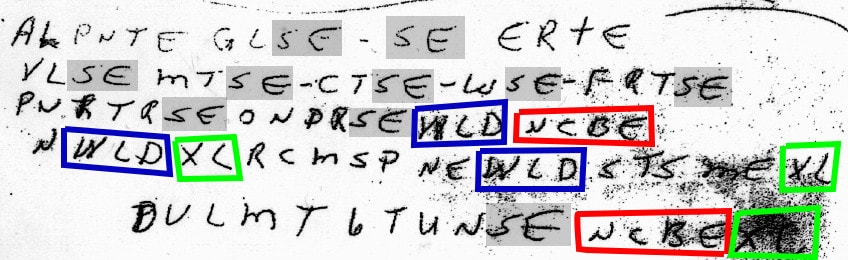 ALPNTE GLSE - SE ERTE
VLSE MTSE-CTSE-WSE-FRTSE
PNRTRSE ONDRSE WLD NCBE
N WLD XL RCMSP NE WLD STS ME XL
DULMT 6 TUNSE NCBE XL